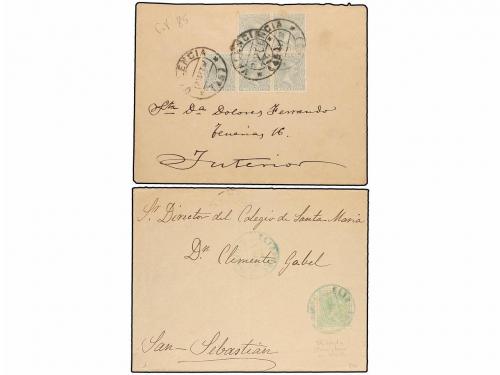 VALENCIA
VALENCIA
Sta Da Dolores Ferrando
Tenerias 16.
Interior
Sr. Director del Colegio de Santa-Maria
Dn Clemente Gabel
San-Sebastián